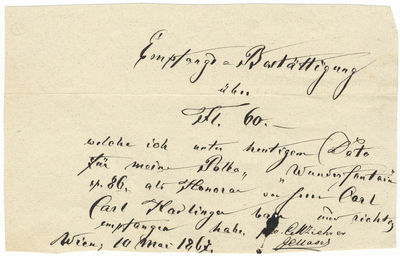 Empfangs=Bestättigung
über
Fl. 60.—
welche ich unter heutigem Dato
für meine Polka „Wunderfontaine“
op. 86. als Honorar von Herrn Carl
Carl Haslinger baar und richtig
empfangen habe.
Wien, 10 Mai 1867.